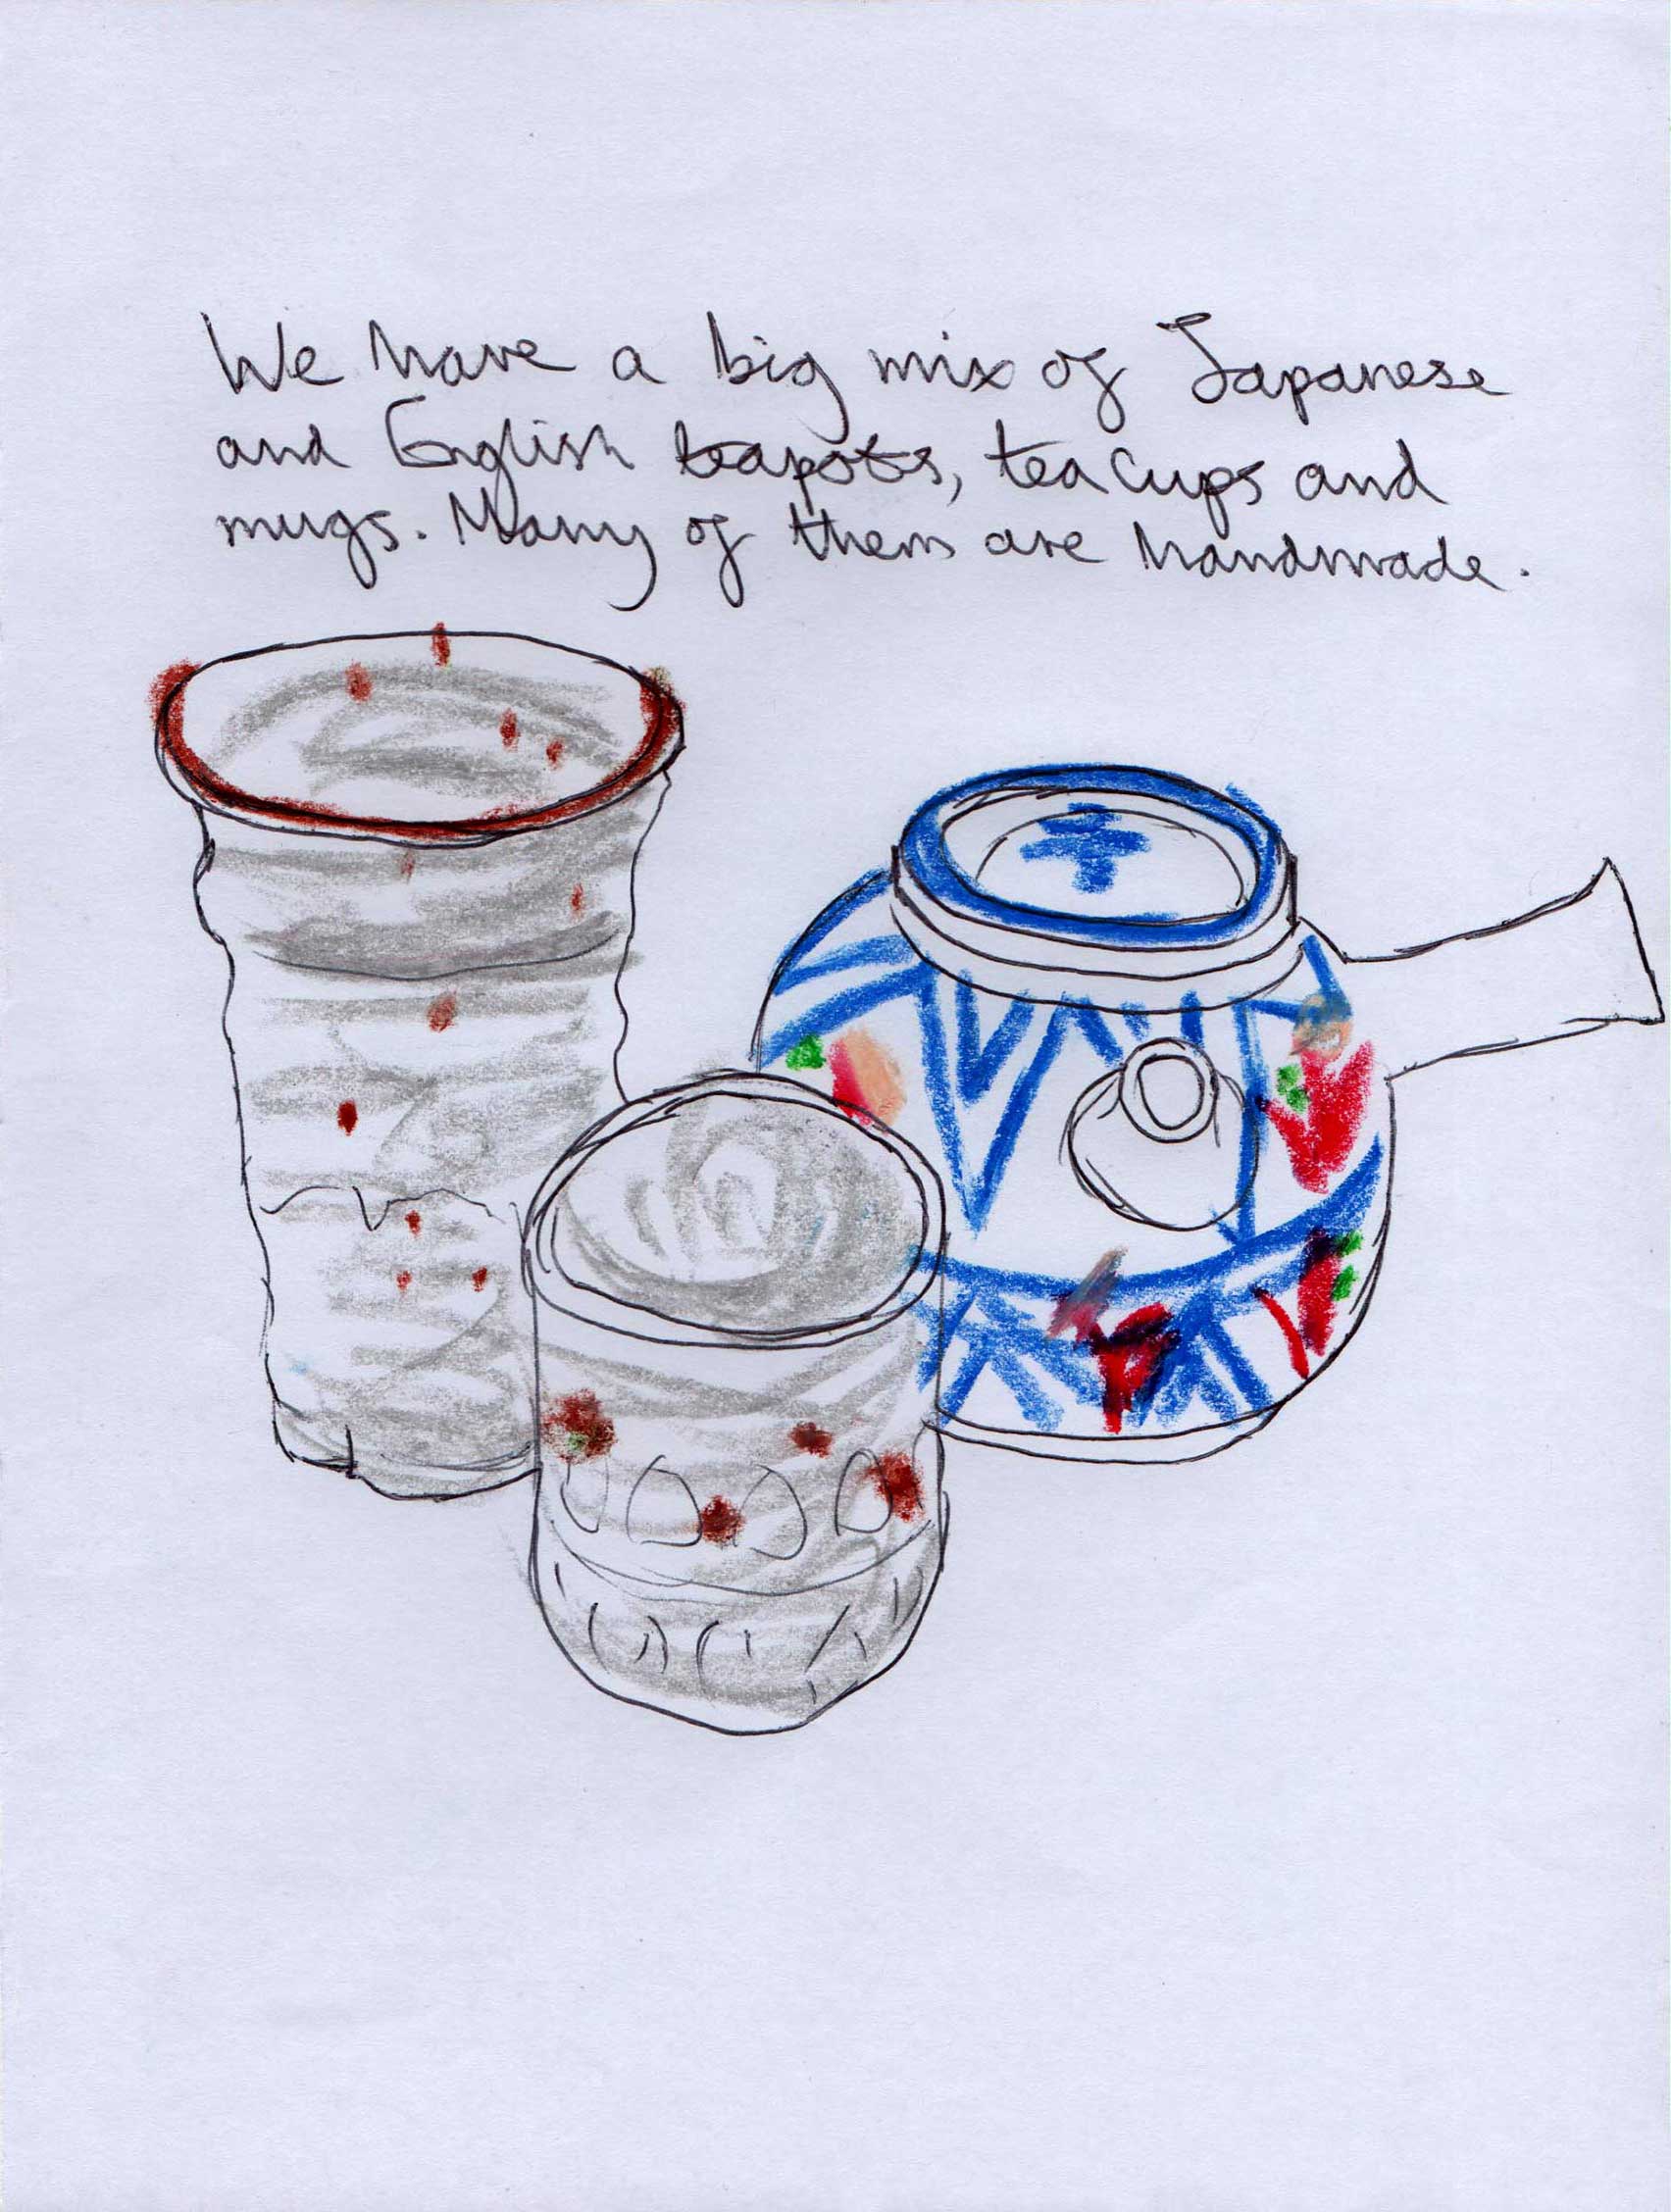 We have a big mix of Japanese
and English teapots, tea cups and
mugs. Many of them are handmade.